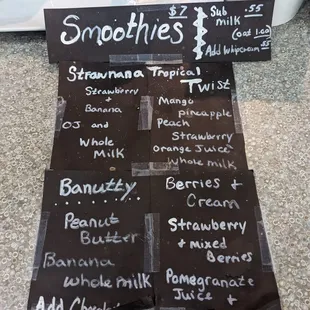 Smoothies $7
Sub .55
milk
(oat 1.00)
Add Whipcream .55
Strawnana
Strawberry
+
Banana
OJ and
Whole
Milk
Tropical
Twist
Mango
pineapple
Peach
Strawberry
Orange Juice
Whole milk
Banutty
Peanut
Butter
Banana
whole milk
Add
Berries +
Cream
Strawberry
+ mixed
Berries
Pomegranate
Juice +